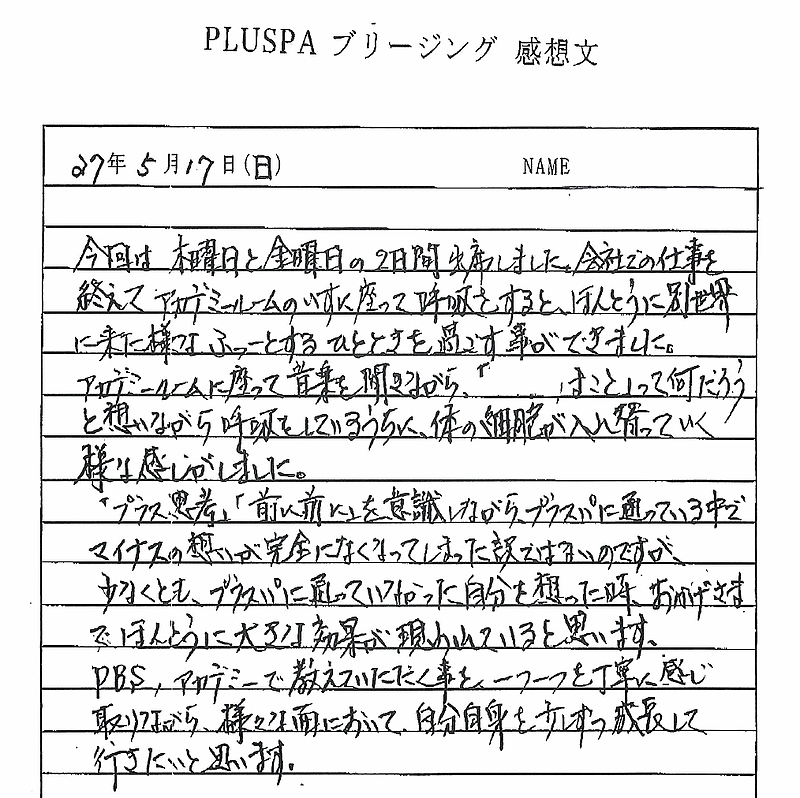 PLUSPA ブリージング 感想文
27年 5月17日(日) NAME
今回は 木曜日と金曜日の2日間出席しました。会社での仕事を
終えて アカデミールームのいすに座って呼吸をすると、ほんとうに別世界
に来た様な ふっーとする ひとときを過ごす事ができました。
アカデミールームに座って音楽を聞きながら、「 」まこと」って何だろう
と想いながら 呼吸をしているうちに、体の細胞が入れ替っていく
様な感じがしました。
「プラス思考」「前に前に」を意識しながら、プラスパに通っている中で
マイナスの想いが完全になくなってしまった訳ではないのですが、
少なくとも、プラスパに通っていなかった自分を想った時、おかげさま
でほんとうに大きな効果が現われていると思います。
PBS, アカデミーで教えていただく事を、一つ一つを丁寧に感じ
取りながら、様々な面において、自分自身を少しずつ成長して
行きたいと思います。